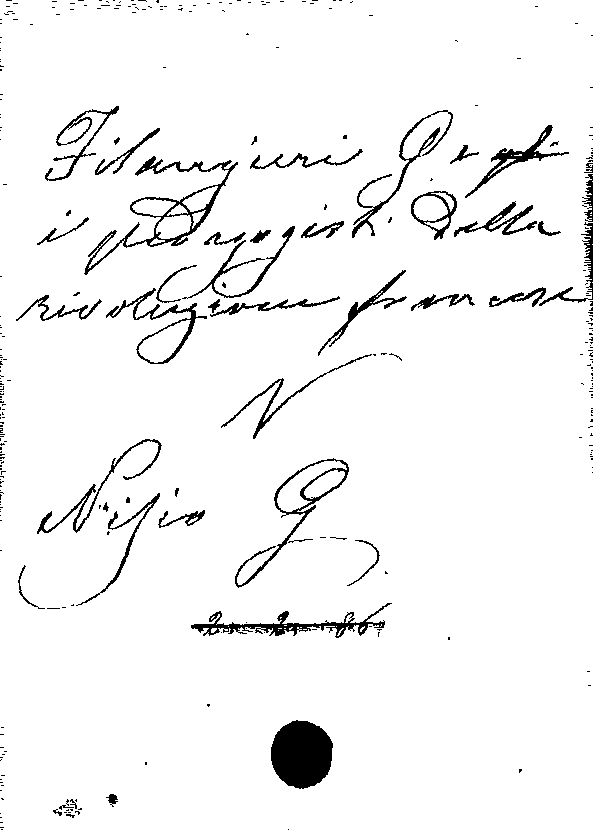 Filangieri G. e gli
i pedagogisti della
rivoluzione francese
V
Nisio G
2 2 86